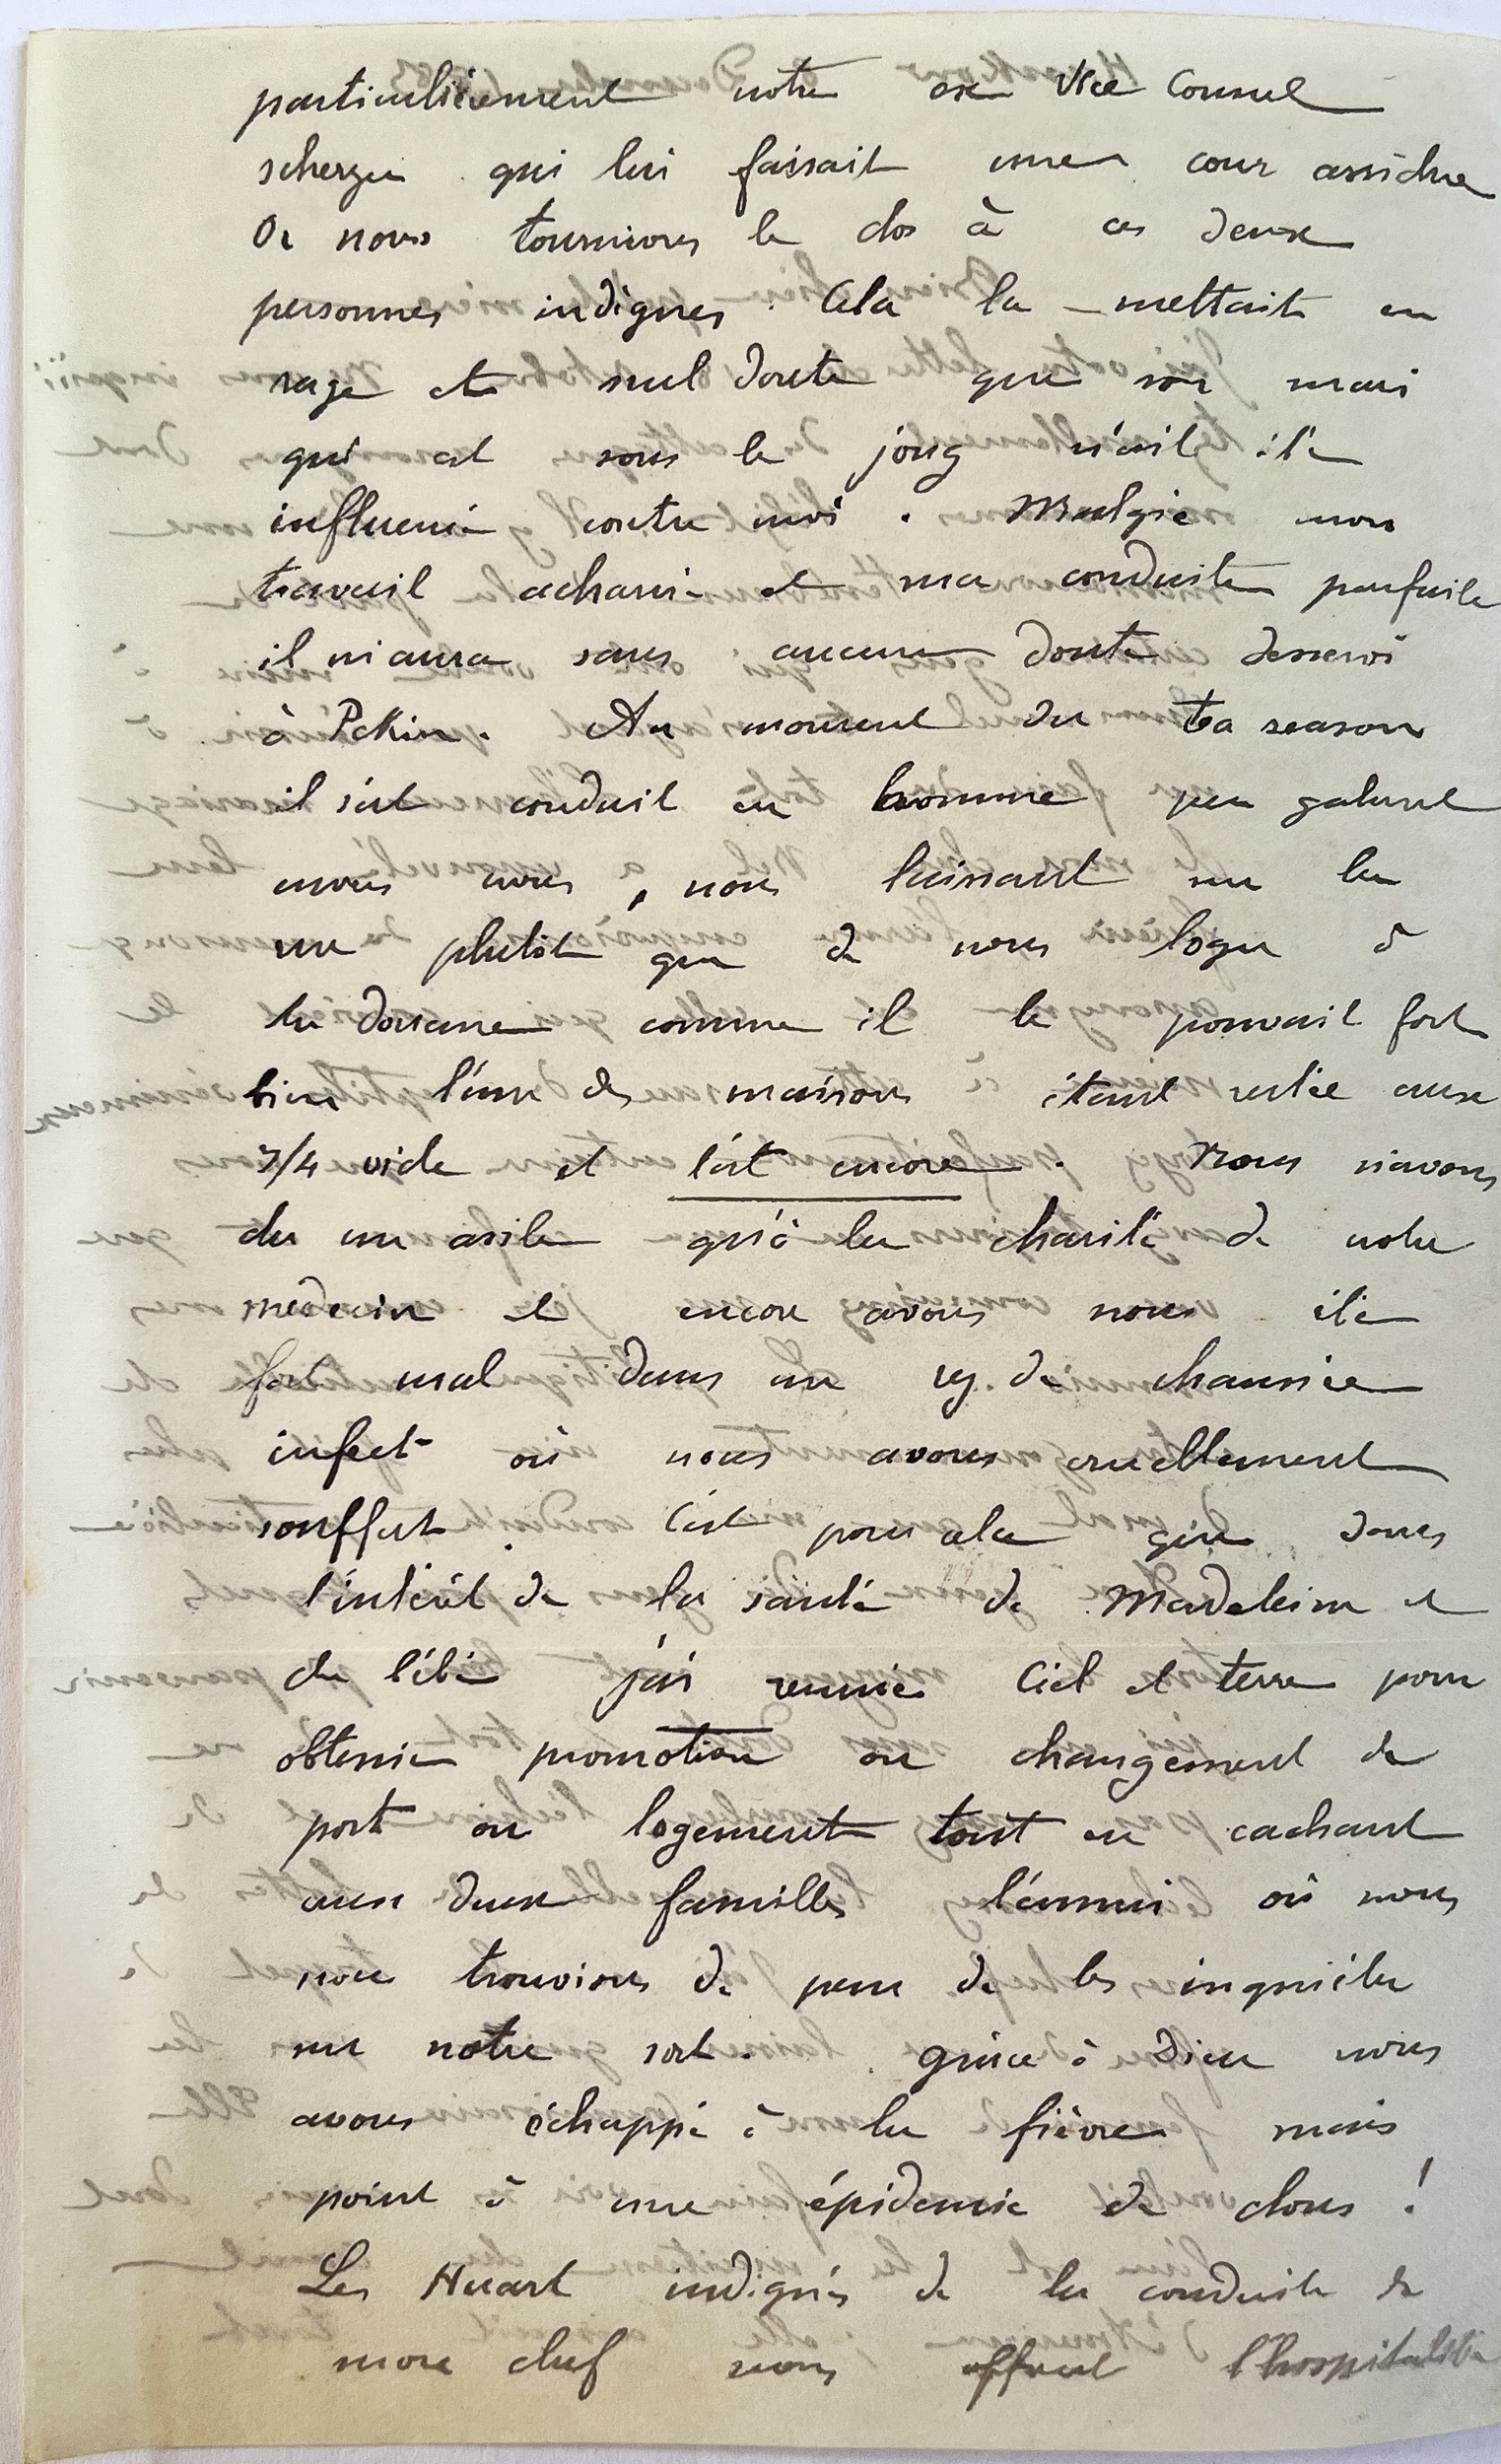 particulièrement notre ex Vice Consul
scherzer qui lui faisait une cour assidue
Or nous tournions le dos à ces deux
personnes indignes. Cela la mettait en
rage et nul doute que son mari
qui est sous le joug n'ait été
influencé contre moi. Malgré mon
travail acharné et ma conduite parfaite
il m'aura sans aucun doute desservi
à Pekin. Au moment du tea season
il s'est conduit en homme peu galant
envers nous, nous laissant sur la
rue plutôt que de nous loger à
la douane comme il le pouvait fort
bien l'une des maisons étant restée aux
3/4 vide et l'est encore. Nous n'avons
du un asile qu'à la charité de notre
médecin et encore avons nous été
fort mal dans un rez de chaussée
infect où nous avons cruellement
souffert. C'est pour cela que dans
l'intérêt de la santé de Madeleine et
de bébé j'ai remué Ciel et terre pour
obtenir promotion ou changement de
port ou logement tout en cachant
aux deux familles l'ennui où nous
nous trouvions de peur de les inquiéter
sur notre sort. grâce à Dieu nous
avons échappé à la fièvre mais
point à une épidemie de clous !
Les Huart indignés de la conduite de
mon chef nous offrent l'hospitalité